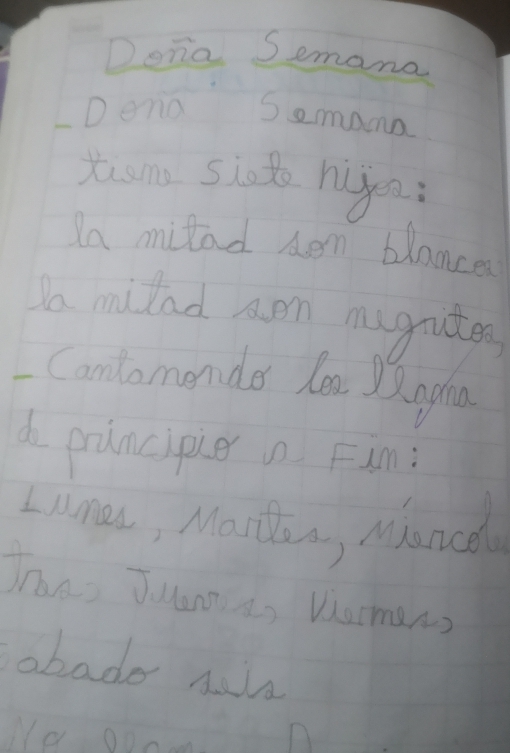 Doña Semana
- Dona Semana
tiene siete hijos:
la mitad son blancos
la mitad son negritos,
- Cantamondo los llama
de principio a Fin:
Lunes, Martes, Miércole
tres, Jueves, Viermes,
abado seis
No llam